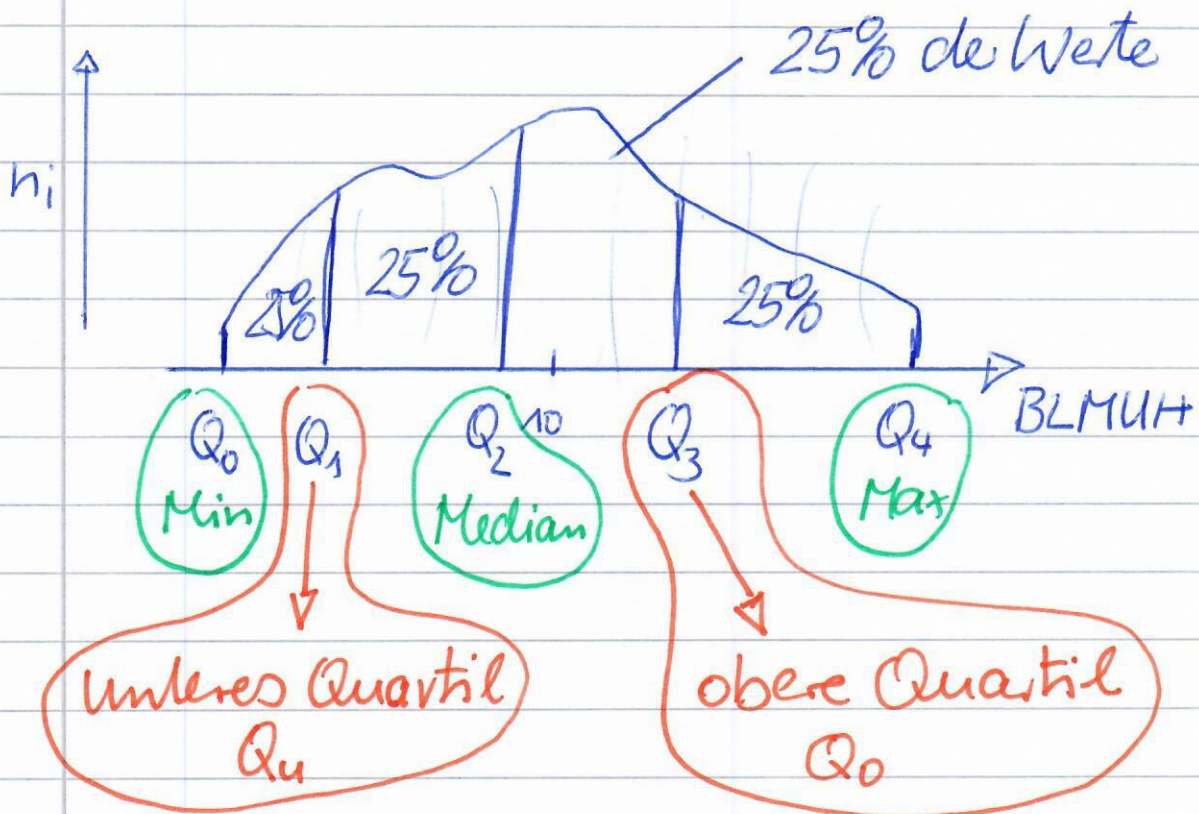 25% de Werte
ni
25%
25%
25%
10
BLMUH
Q0
Min
Q1
Q2
Median
Q3
Q4
Max
unteres Quartil
Qu
obere Quartil
Qo